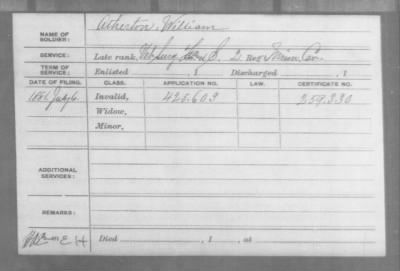 NAME OF SOLDIER: Atherton, William
SERVICE: Late rank, , 2 Reg
TERM OF SERVICE: Enlisted , 1 Discharged , 1
DATE OF FILING. CLASS. APPLICATION NO. LAW. CERTIFICATE NO.
July 6 Invalid, 426.603 259.330
Widow,
Minor,
ADDITIONAL SERVICES:
REMARKS:
Died , 1 , at